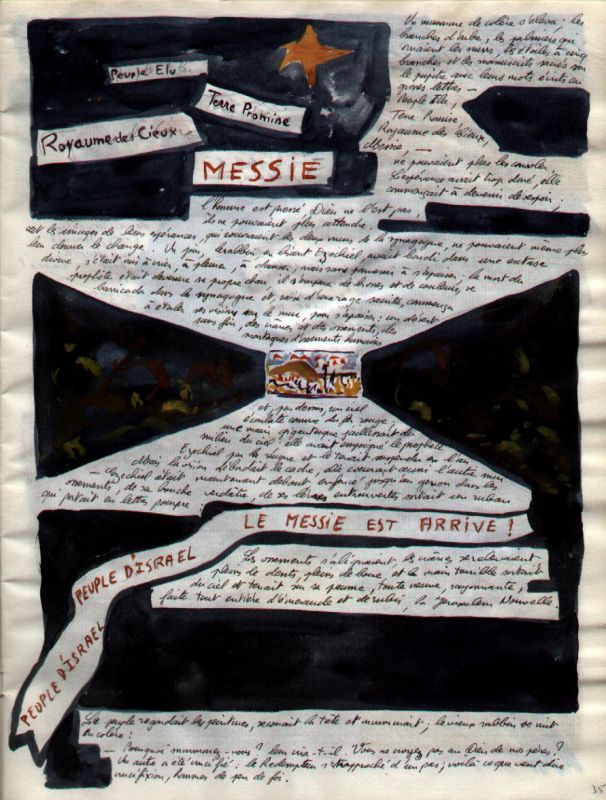 Un murmure de colère s'éleva ; les
branches d'arbre, les palmiers qui
ornaient les murs, les étoiles à cinq
branches et les manuscrits sacrés sur
le pupitre avec leurs mots écrits en
grosses lettres —
Peuple Élu,
Terre Promise,
Royaume des Cieux,
Messie, —
ne pouvaient plus les consoler.
L'espérance avait trop duré, elle
commençait à devenir désespoir ;
Peuple Elu
Terre Promise
Royaume des Cieux
MESSIE
l'Homme est pressé Dieu ne l'est pas ;
ils ne pouvaient plus attendre
et les images de leurs espérances, qui couvraient les deux murs de la synagogue, ne pouvaient même plus
leur donner le change. Un jour le rabbin en lisant Ezéchiel, avait bondi dans une extase
divine, s'était mis à crier, à pleurer, à danser, mais sans parvenir à s'apaiser. La mort du
prophète était devenue sa propre chair ; il s'empara de brosses et de couleurs, se
barricada dans la synagogue et, saisi d'une rage sacrée, commença
à étaler ses visions sur le mur, pour s'apaiser ; un désert
sans fin, des crânes et des ossements, des
montagnes d'ossements humains
et, par dessus, un ciel
écarlate comme du fer rouge ;
une main gigantesque jaillissait du
milieu du ciel : elle avait empoigné le prophète
Ezéchiel par la nuque et le tenait suspendu en l'air
Mais la vision débordait le cadre, elle couvrait aussi l'autre mur
— Ezéchiel était maintenant debout, enfoncé jusqu'au genou dans les
ossements, de sa bouche verdâtre, de ses lèvres entrouvertes sortait un ruban
qui portait en lettres pourpre :
LE MESSIE EST ARRIVE !
PEUPLE D'ISRAEL
PEUPLE D'ISRAEL
Les ossements s'alignaient les crânes se relevaient
pleins de dents, pleins de boue, et la main terrible sortait
du ciel et tenait sur sa paume, toute neuve, rayonnante,
faite tout entière d'émeraude et de rubis, la Jerusalem Nouvelle.
Le peuple regardait les peintures, secouait la tête et murmurait ; le vieux rabbin se mit
en colère :
— Pourquoi murmurez-vous ? leur cria-t-il. Vous ne croyez pas au Dieu de nos pères ?
Un autre a été crucifié : le Redempteur s'est rapproché d'un pas ; voilà ce que veut dire
crucifixion, hommes de peu de foi.
35